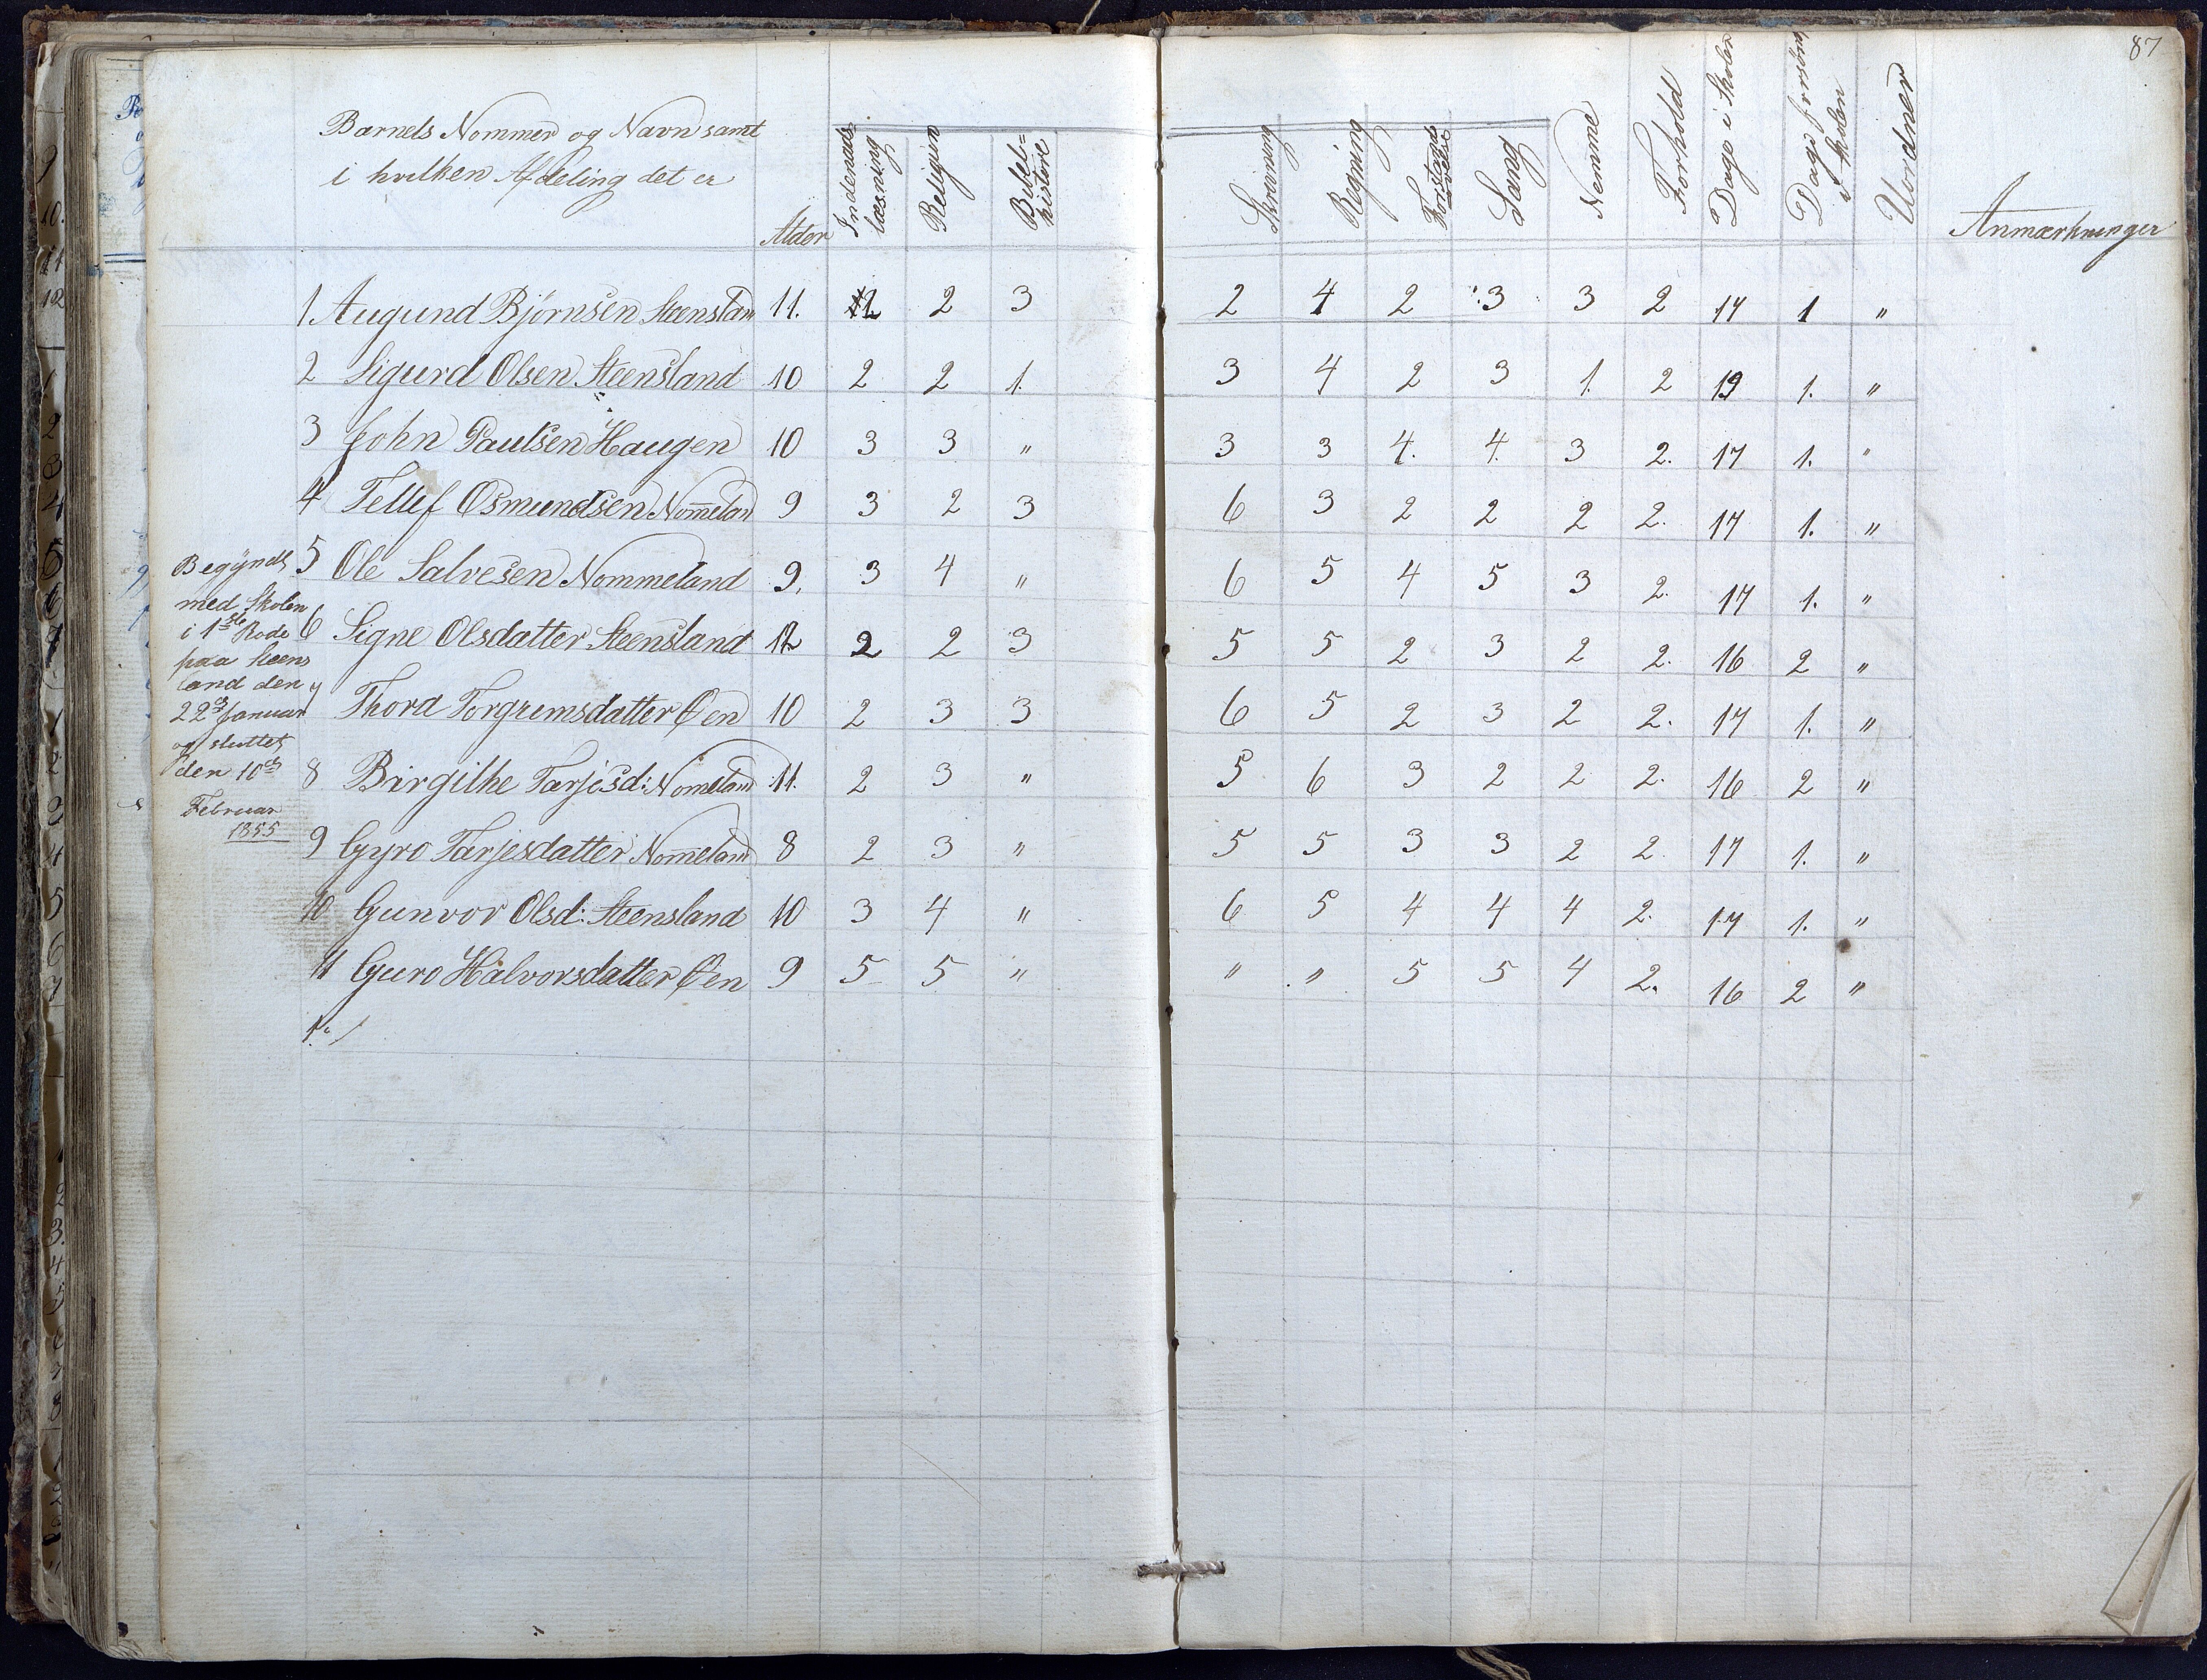 87
Barnets Nommer og Navn samt
i hvilken Afdeling det er
Alder
Indenads
læsning
Religion
Bibel=
historie
Skrivning
Regning
Forstands
øvelse
Sang
Nemme
Forhold
Dage i Skolen
Dage forsømt
i Skolen
Uordner
Anmærkninger
1 Augund Bjørnsen Steensland 11. 2 2 3 2 4 2 3 3 2 17 1 "
2 Sigurd Olsen Steensland 10 2 2 1. 3 4 2 3 1. 2 19 1. "
3 John Paulsen Haugen 10 3 3 " 3 3 4. 4. 3 2. 17 1. "
4 Tellef Osmundsen Nom̄eland 9 3 2 3 6 3 2 2 2 2. 17 1. "
5 Ole Salvesen Nommeland 9. 3 4 " 6 5 4 5 3 2. 17 1. "
6 Signe Olsdatter Steensland 12 2 2 3 5 5 2 3 2 2. 16 2 "
7 Thora Torgrimsdatter Øen 10 2 3 3 6 5 2 3 2 2. 17 1. "
8 Birgithe Tarjesd: Nomeland 11. 2 3 " 5 6 3 2 2 2. 16 2 "
9 Gyro Tarjesdatter Nom̄eland 8 2 3 " 5 5 3 3 2 2. 17 1. "
10 Gunvor Olsd: Steensland 10 3 4 " 6 5 4 4 4 2. 17 1. "
11 Guro Halvorsdatter Øen 9 5 5 " " " 5 5 4 2. 16 2 "
Begyndt
med Skolen
i 1ste Rode
paa Steens
land den
22de Januar
og sluttet
den 10de
Februar
1855